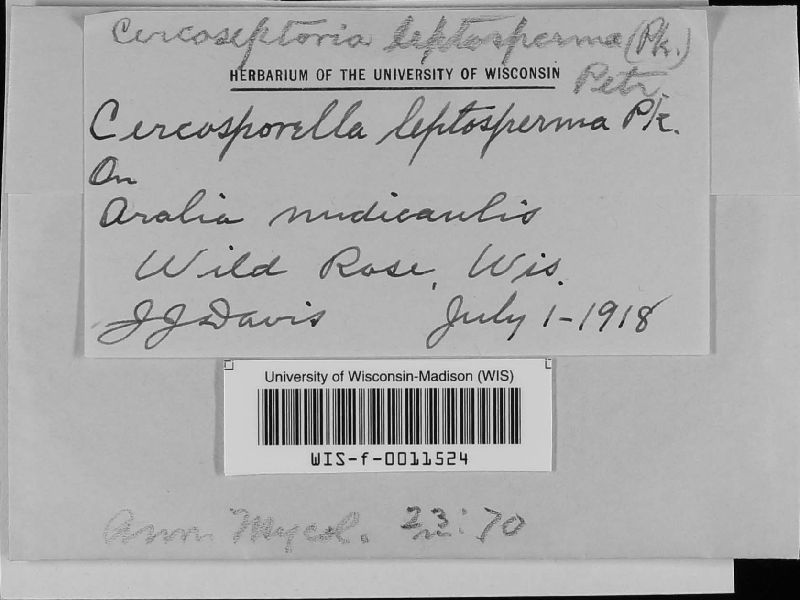 Cercoseptoria leptosperma (Pk.)
Petr.
HERBARIUM OF THE UNIVERSITY OF WISCONSIN
Cercosporella leptosperma Pk.
On
Aralia nudicaulis
Wild Rose, Wis.
JJDavis July 1-1918
University of Wisconsin-Madison (WIS)
WIS-f-0011524
Ann. Mycol. 23: 70